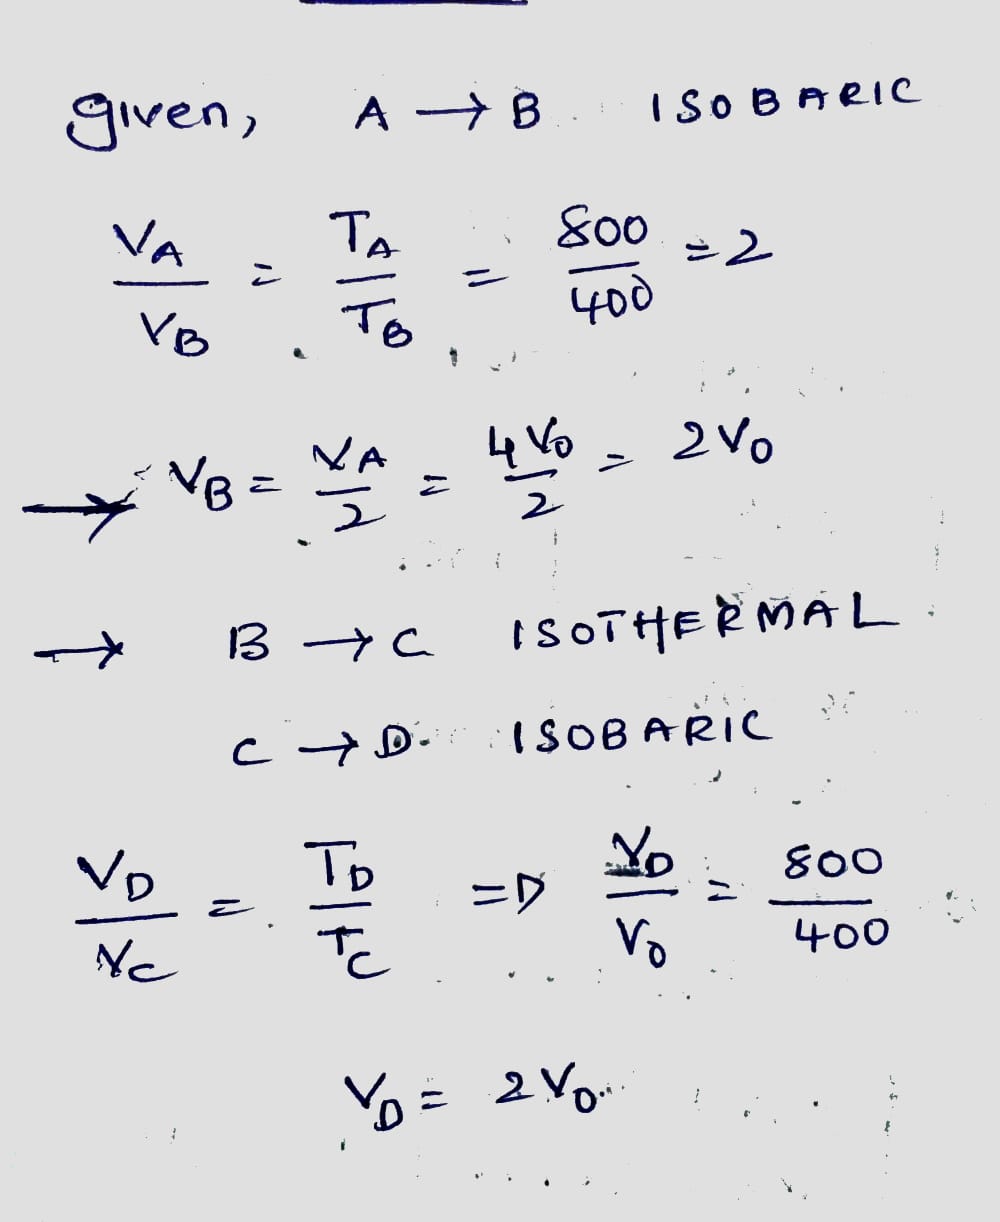 given, A → B ISOBARIC
VA/VB = TA/TB = 800/400 = 2
→ VB = VA/2 = 4V0/2 = 2V0
→ B → C ISOTHERMAL
C → D ISOBARIC
VD/VC = TD/TC ⇒ VD/V0 = 800/400
VD = 2V0